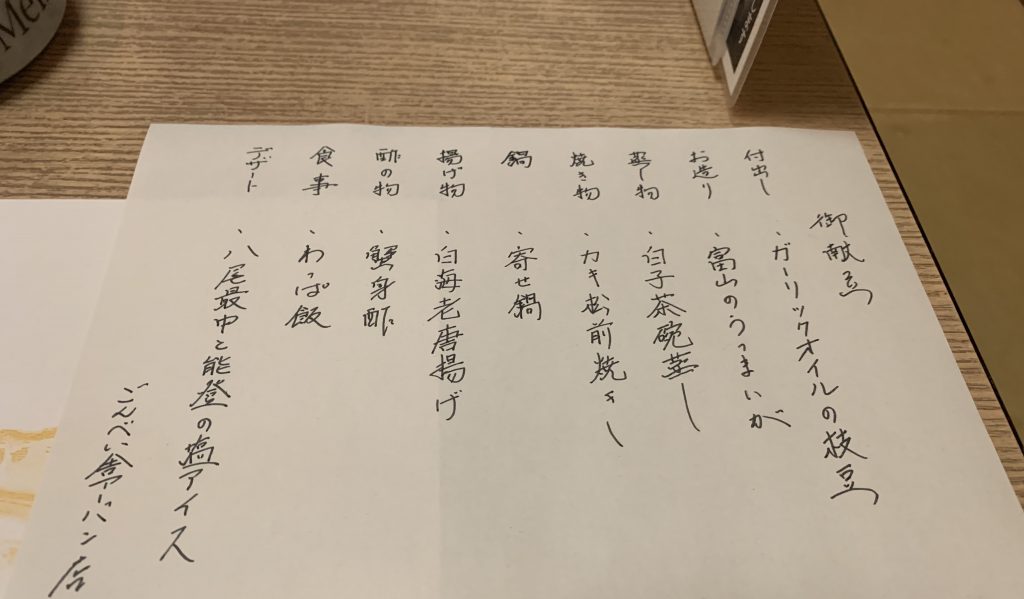 御献立
付出し ・ガーリックオイルの枝豆
お造り ・富山のうっまいが
蒸し物 ・白子茶碗蒸し
焼き物 ・カキ松前焼き
鍋 ・寄せ鍋
揚げ物 ・白海老唐揚げ
酢の物 ・蟹身酢
食事 ・わっぱ飯
デザート ・八尾最中と能登の塩アイス
ごんべい舎アーバン店